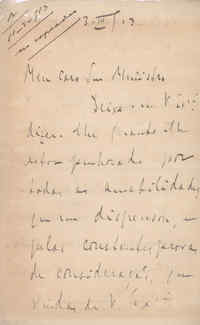 3.III.13
Meu caro Snr Ministro
Deixe-me V. Ex.ª
dizer-lhe quanto lhe
estou penhorado por
todas as amabilidades
que me dispensou, e
pelas constantes provas
de consideração, que
de V. Ex.ª